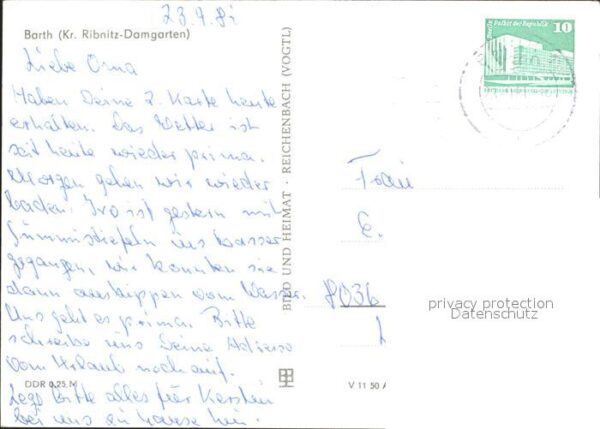 23.7.81
Barth (Kr. Ribnitz-Damgarten)
Liebe Oma
Haben Deine 2. Karte heute
erhalten. Das Wetter ist
seit heute wieder prima.
Morgen gehen wir wieder
baden. Ivo ist gestern mit
Gummistiefeln ins Wasser
gegangen, wir konnten sie
dann auskippen vom Wasser.
Uns geht es prima. Bitte
schreibe uns Deine Adresse
vom Urlaub noch auf.
Lege bitte alles für Kersten
bei uns zu Hause hin.
DDR 0,25 M
BILD UND HEIMAT · REICHENBACH (VOGTL)
V 11 50 A
10
Berlin, Palast der Republik
Frau
E.
8036
privacy protection
Datenschutz